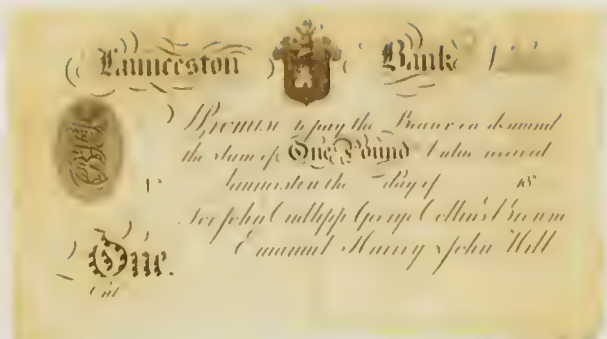 Launceston Bank
I Promise to pay the Bearer on demand
the Sum of One Pound Value received
Launceston the day of 18
For John Geo Collins
One. Emanuel Harvey & John Hill